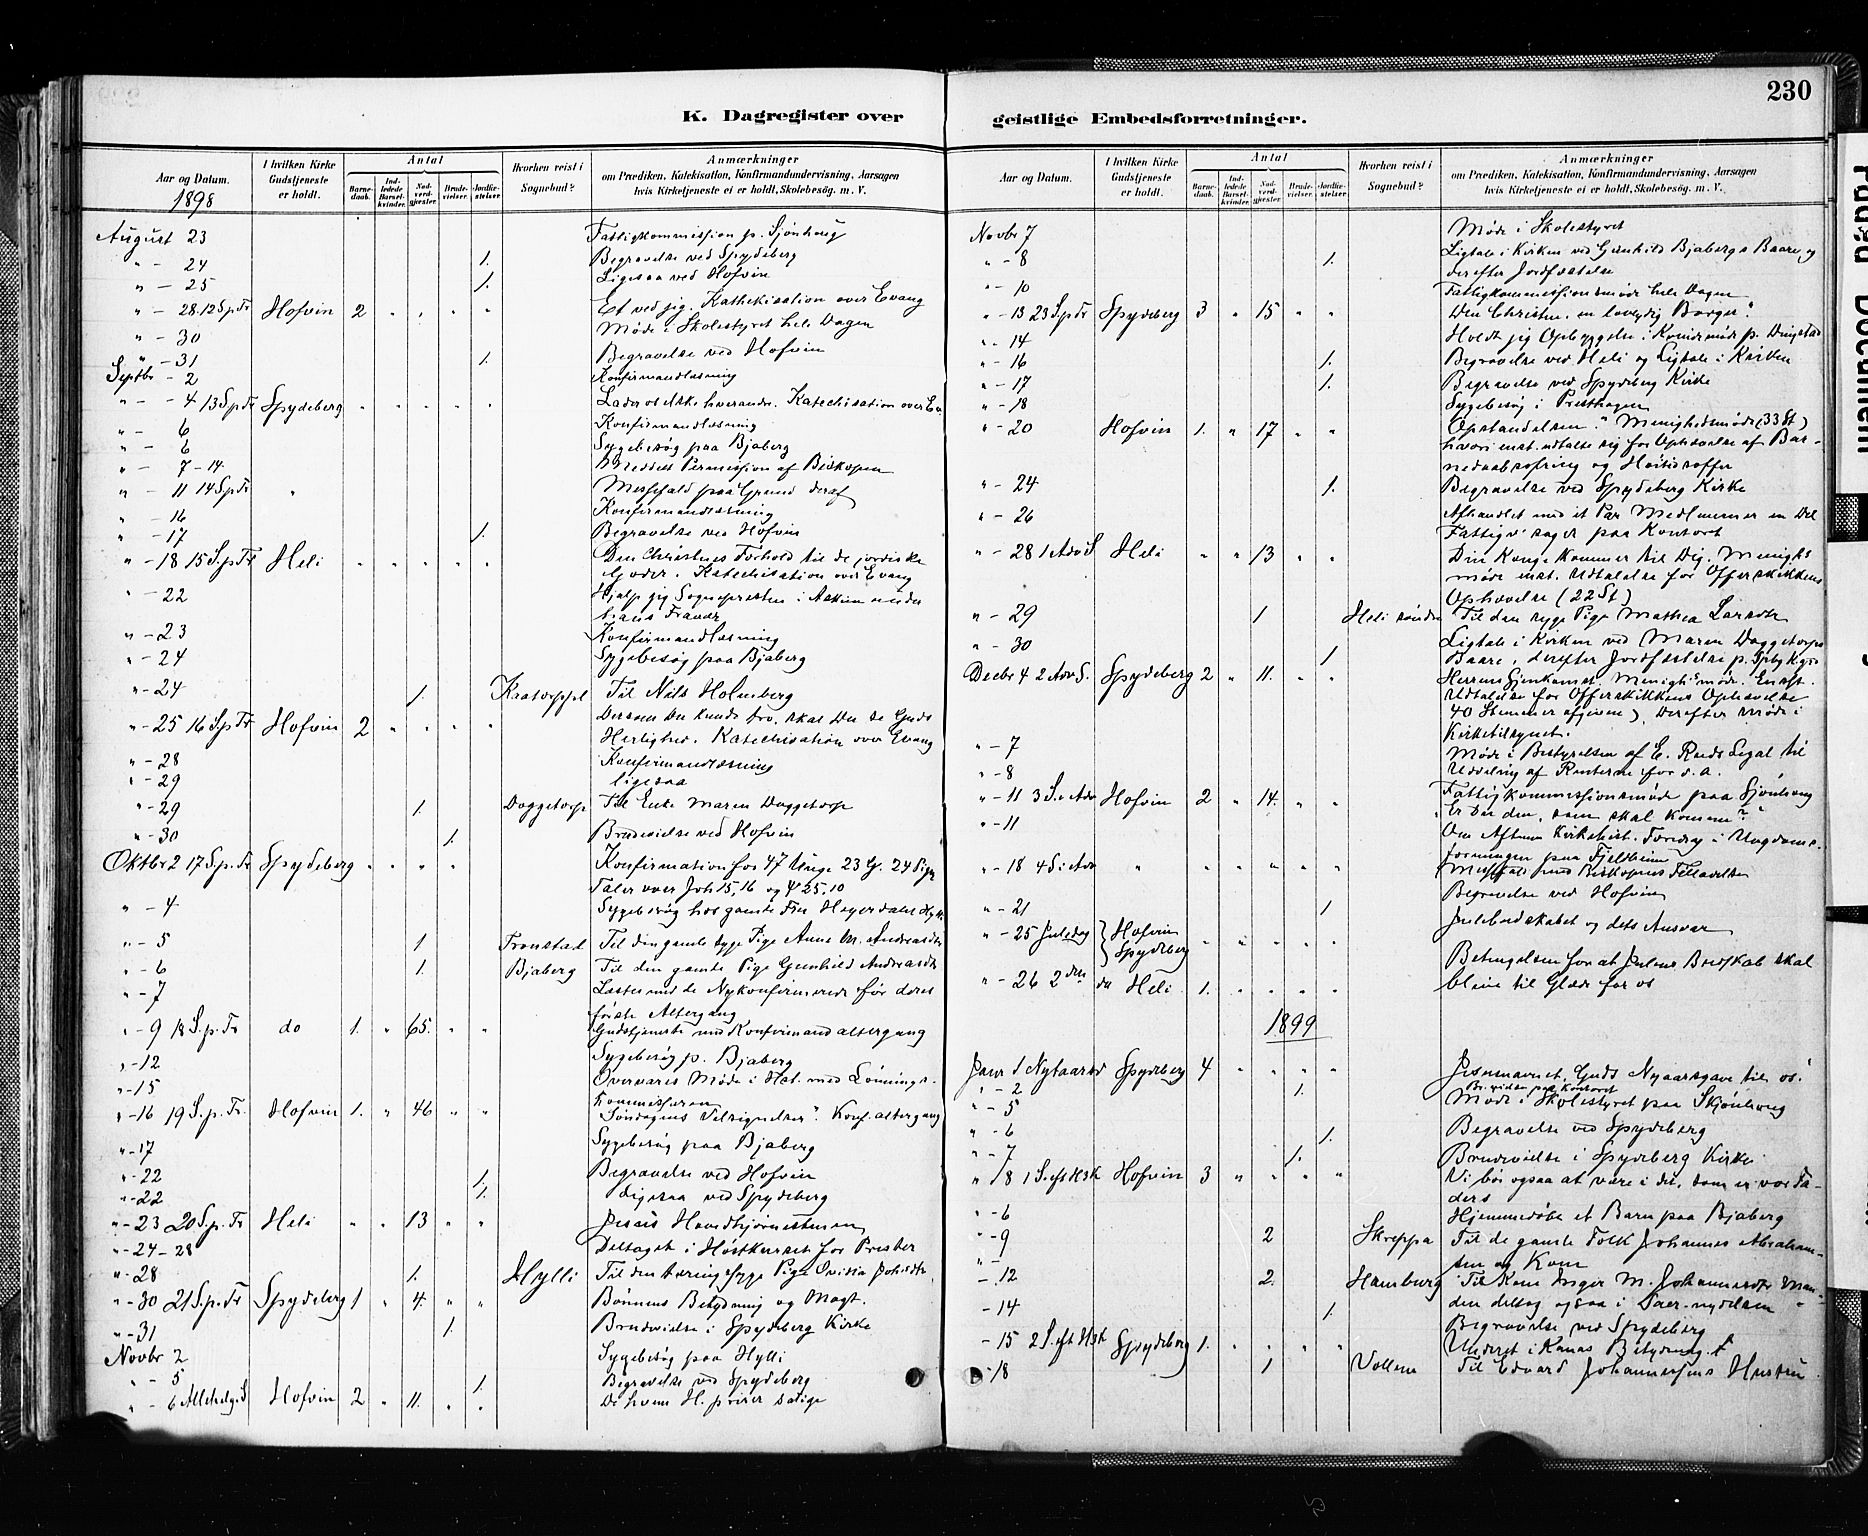 230
K. Dagregister over
geistlige Embedsforretninger.
Aar og Datum.
1898
I hvilken Kirke Gudstjeneste er holdt.
Antal
Barnedaab.
Indledede Barselkvinder.
Nadverdgjester.
Brudevielser.
Jordfæstelser.
Hvorhen reist i Sognebud?
Anmærkninger
om Prædiken, Katekisation, Konfirmandundervisning, Aarsagen
hvis Kirketjeneste ei er holdt, Skolebesög. m. V.
August 23 Fattigkommission p. Sjönhaug
" - 24 1. Begravelse ved Spydeberg
" - 25 1. Ligesaa ved Hofvin
" - 28. 12 S p Tr Hofvin 2 " " " " Et ved jig. Kathekisation over Evang
" - 30 Möde i Skolestyret hele Dagen
" - 31 1. Begravelse ved Hofvin
Septbr - 2 Konfirmandlæsning
" - 4 13 S p Tr Spydeberg " " " " " Lader os elske hverandre. Katechisation over Ev
" - 6 Konfirmandlæsning
" - 6 Sygebesög paa Bjaberg
" - 7-14. Permission af Biskopen
" - 11 14 S p Tr " Messefald paa Grund deraf
" - 16 Konfirmandlæsning
" - 17 1. Begravelse ved Hofvin
" - 18 15 S. p Tr Heli " " " " " Den Christnes Forhold til de jordiske
Goder. Katechisation over Evang
" - 22 Hjalp jig Sognepresten i Askim under
hans Fravær
" - 23 Konfirmandlæsning
" - 24 Sygebesög paa Bjaberg
" - 24 1. Til Nils Holmberg
" - 25 16 S. p Tr Hofvin 2 " " " " Dersom Du kunde tro, skal Du se Guds
Herlighed. Katechisation over Evang
" - 28 Konfirmandlæsning
" - 29 ligesaa
" - 29 1. Daggetorp Til Enke Maren Daggetorp
" - 30 1. Brudevielse ved Hofvin
Oktbr 2 17 S. p. Tr Spydeberg " " " " Konfirmation for 47 Unge 23 G. 24 Piger
Taler over Joh 15, 16 og 4 25. 10
" - 4 Sygebesög hos gamle Fru Heyerdahl
" - 5 1 Fronstad Til den gamle syge Pige Anne M. Andreasdtr
" - 6 1. Bjaberg Til den gamle Pige Gunhild Andreasdtr
" - 7 Læste med de Nykonfirmerede för deres
förste Altergang
" - 9 18 S. p. Tr do 1. " 65. " " Gudstjeneste med Konfirmandaltergang
" - 12 Sygebesög p. Bjaberg
" - 15 Overvares Möde i med Lönnings-
kommissæren
" - 16 19 S. p. Tr. Hofvin 1. " 46 " " "Söndagens Velsignelser". Konf. altergang
" - 17 Sygebesög paa Bjaberg
" - 22 1. Begravelse ved Hofvin
" - 22 1. Ligesaa ved Spydeberg
" - 23 20 S. p. Tr Heli " " 13 " " Jesus Hovedhjörnestenen
" - 24-28 Deltaget i Höstkurset for Prester
" - 28 1. Hylli Til den tæringssyge Pige
" - 30 21 S. p. Tr Spydeberg 1 " 4. " " Bönnens Betydning og Magt.
" - 31 1. Brudevielse i Spydeberg Kirke
Novbr 2 Sygebesög paa Hylli
" - 5 1. Begravelse ved Spydeberg
" - 6 Allehelg. S Hofvin 2 " 11. " " De hvem H. priser salige
Aar og Datum.
I hvilken Kirke Gudstjeneste er holdt.
Antal
Barnedaab.
Indledede Barselkvinder.
Nadverdgjester.
Brudevielser.
Jordfæstelser.
Hvorhen reist i Sognebud?
Anmærkninger
om Prædiken, Katekisation, Konfirmandundervisning, Aarsagen
hvis Kirketjeneste ei er holdt, Skolebesög. m. V.
Novbr 7 Möde i Skolestyret
" - 8 1. Ligtale i Kirken ved Gunhild Bjabergs Baare, og
derefter Jordfæstelse
" - 10 Fattigkommissionsmöde hele Dagen
" - 13 23 S p Tr Spydeberg 3 " 15 " " Den Christne, en lovlydig Borger."
" - 14 Holdt jig Opbyggelse i Kvindemöde p.
" - 16 1. Begravelse ved Heli og Ligtale i Kirken
" - 17 1. Begravelse ved Spydeberg Kirke
" - 18 Sygebesög i Presthagen
" - 20 Hofvin 1. " 17 " " Opstandelsen." Menighedsmöde (33 St)
hvori enst. udtalte sig for Ophævelse af Bar-
nedaabsofring og Höitidsoffer
" - 24 1. Begravelse ved Spydeberg Kirke
" - 26 Afhandlet med et Par Medlemmer en Del
Fattigvsager paa Kontoret
" - 28 1 Adv S Heli " " 13 " " Din Konge kommer til Dig. Menighs
möde enst. Udtalelse for Offerskikkens
Ophævelse (22 St)
" - 29 1 Heli söndre Til den syge Pige Mathea Larsdtr
" - 30 1 Ligtale i Kirken ved Maren Daggetorps
Baare, derefter Jordfæstelse p. Spbg Kgrd
Decbr 4 2 Adv S. Spydeberg 2 " 11. " " Herrens Gjenkomst. Menighsmöde. Enst.
Udtalelse for Offerskikkens Ophævelse
40 Stemmer afgivne). Derefter Möde i
Kirketilsynet.
" - 7 Möde i Bestyrelsen af E. Ruds Legat til
Uddeling af Renterne for d. A.
" - 8 Fattigkommissionsmöde paa Sjönhaug
" - 11 3 S. i Adv Hofvin 2 " 14. " " "Er Du den, som skal komme"?
" - 11 Om Aftenen Kirkehist. Foredrag i Ungdoms-
foreningen paa Fjeldheim
" - 18 4 S i Adv " " " " " " Messefald med Biskopens Tilladelse
" - 21 1 Begravelse ved Hofvin
" - 25 Juledag Hofvin Spydeberg " " " " Julebudskabet og dets Ansvar
" - 26 2den do Heli 1. " " " " Betingelsen for at Julens Budskab skal
blive til Glæde for os
1899
Janr 1 Nytaarsd Spydeberg 4 " " " " Jesunavnet, Guds Nyaarsgave til os!
" - 2 1. Br. vielse paa Kontoret
" - 5 Möde i Skolestyret paa Skjönhaug
" - 6 1. Begravelse ved Spydeberg
" - 7 1. Brudevielse i Spydeberg Kirke
" /8 1 S. eft H3K Hofvin 3 " " " " Vi bör ogsaa at være i det, som er vor Fa-
ders
" - 6 Hjemmedöbt et Barn paa Bjaberg
" - 9 2 Skreppa Til de gamle Folk Johannes Abraham-
sen og Kone
- 12 2. Hamburg Til Kone Inger M. Johannesdtr Man-
den deltog ogsaa i Sacr. nydelsen
- 14 1 Begravelse ved Spydeberg
- 15 2 S. eft H3K Spydeberg 1. " " " " Underet i Kanas Betydning
- 18 1 Vollene Til Edvard Johannessens Hustru